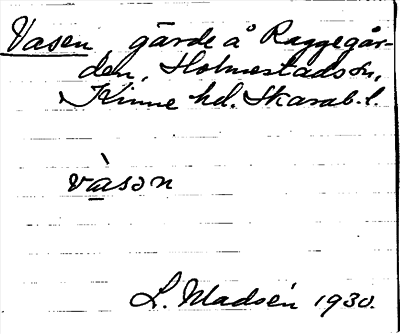 Vasen, gärde å Raggegår-
den, Holmestads sn,
Kinne hd. Skarab. l.
vàsən
L. Madsén 1930.